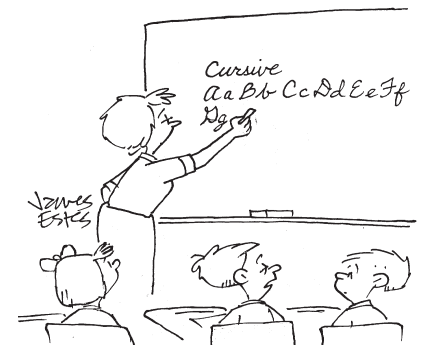 Cursive
Aa Bb Cc Dd Ee Ff
Gg
James
Estes